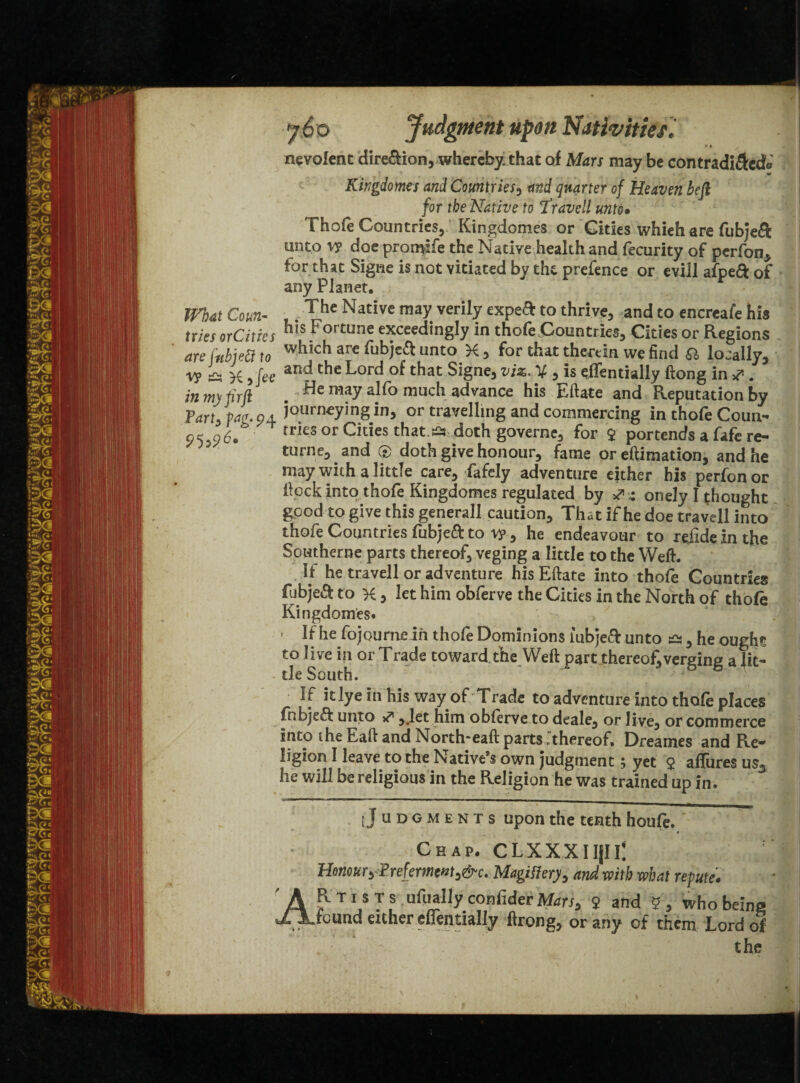 760 Judgment upon Nativities.
nevolent direction, whereby that of Mars may be contradicted.
Kingdomes and Countries, and quarter of Heaven best
for the Native to Travell unto.
Those Countries, Kingdomes or Cities which are subject
unto ♑ doe promise the Native health and security of person,
for that Signe is not vitiated by the presence or evill aspect of
any Planet.
What Coun-
tries or Cities
are subject to
♑ ♎ ♓, see
in my first
Part, pag. 94
95, 96.
The Native may verily expect to thrive, and to encrease his
his Fortune exceedingly in those Countries, Cities or Regions
which are subject unto ♓, for that therein we find ☊ locally,
and the Lord of that Signe, viz. ♃, is essentially stong in ♐.
He may also much advance his Estate and Reputation by
journeying in, or travelling and commercing in those Coun-
tries or Cities that ♎ doth governe, for ♀ portends a safe re-
turne, and ⊕ doth give honour, fame or estimation, and he
may with a little care, safely adventure either his person or
stock into those Kingdomes regulated by ♐: onely I thought
good to give this generall caution, That if he doe travell into
those Countries subject to ♑, he endeavour to reside in the
Southerne parts thereof, veging a little to the West.
If he travell or adventure his Estate into those Countries
subject to ♓, let him observe the Cities in the North of those
Kingdomes.
If he sojourne in those Dominions subject unto ♎, he ought
to live in or Trade toward the West part thereof, verging a lit-
tle South.
If it lye in his way of Trade to adventure into those places
subject unto ♐, let him observe to deale, or live, or commerce
into the East and North-east parts thereof. Dreames and Re-
ligion I leave to the Native's own judgment; yet ♀ assures us,
he will be religious in the Religion he was trained up in.
JUDGMENTS upon the tenth house.
CHAP. CLXXXIIII.
Honour, Preferment, &c. Magistery, and with what repute.
ARTISTS usually consider Mars, ♀ and ☿, who being
found either essentially strong, or any of them Lord of
the